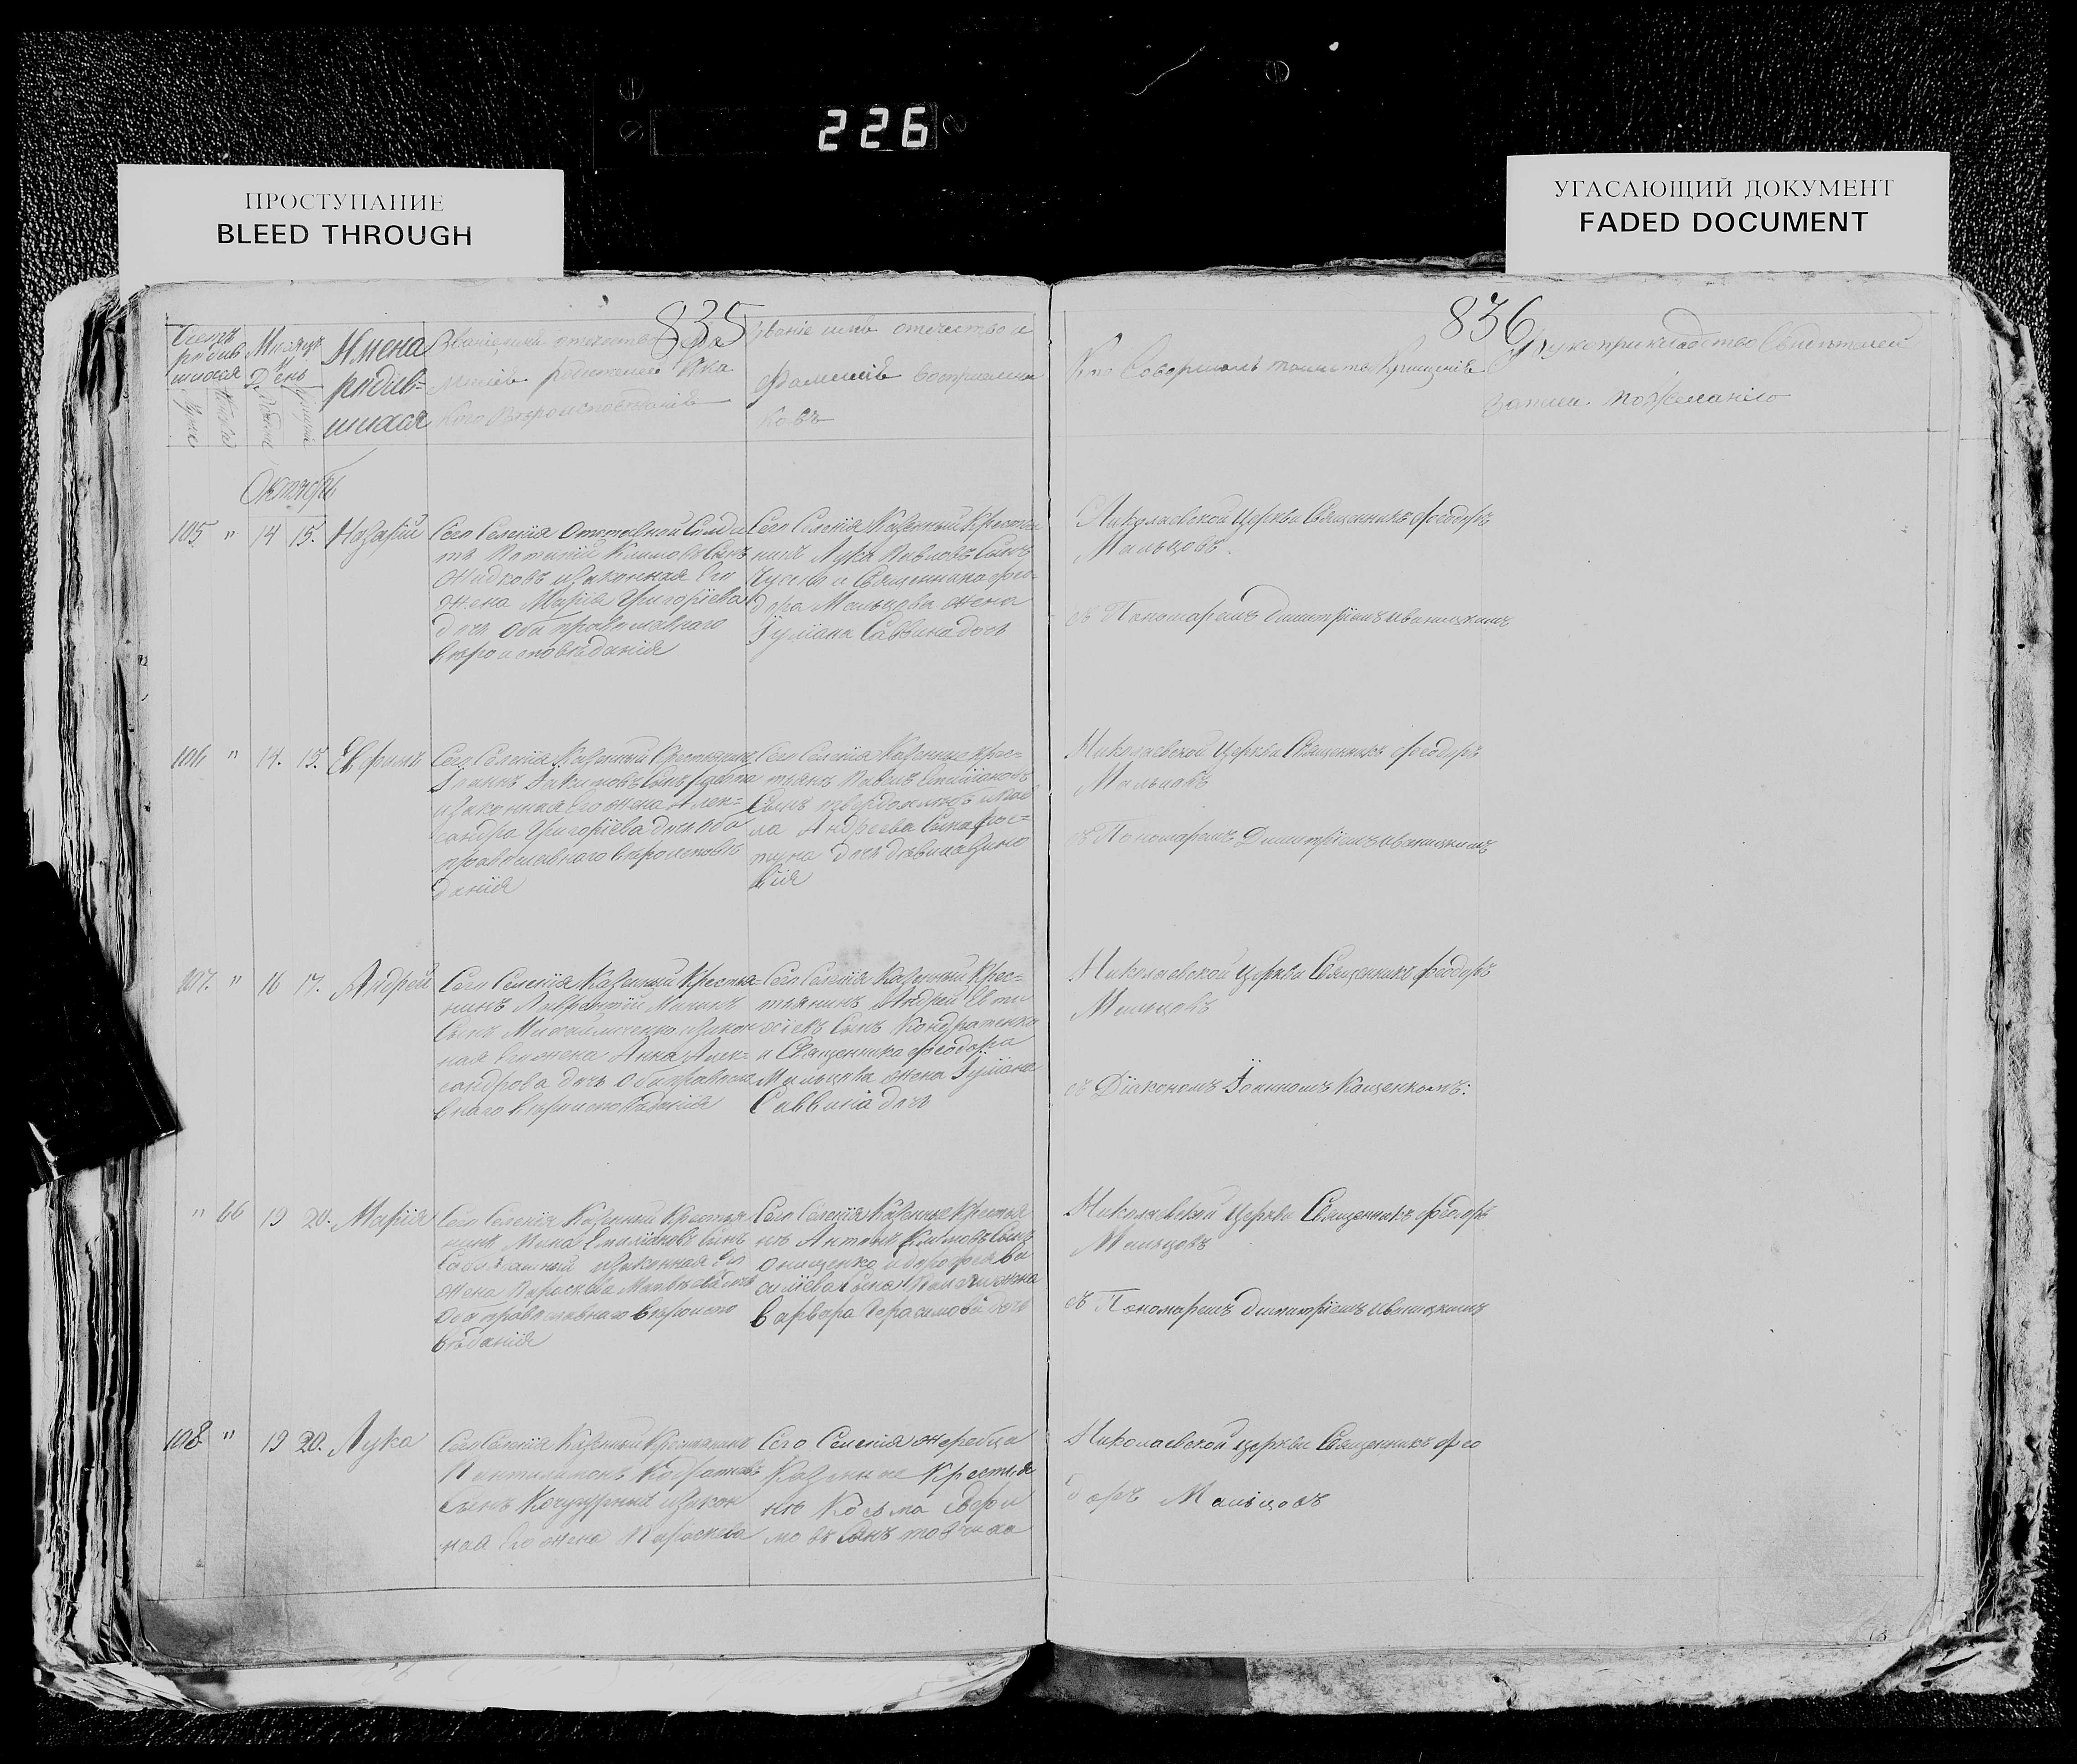 226
ПРОСТУПАНИЕ
BLEED THROUGH
УГАСАЮЩИЙ ДОКУМЕНТ
FADED DOCUMENT
835
836
Счетъ родив шихся
Мѣсяцъ День
Имена
родив-
шихся
Званіе имя отечество и
фамилія Воспріемни
ковъ
Кто Совершалъ таинство Крещенія
Рукоприкладство Свидетелей
записи по желанію
Октябрь
105 " 14 15. Назарій
Сего Селенія Отставной Солда
тъ Климовъ Сынъ
Жидковъ и законная Его
жена Марія Григоріева
дочь Оба православнаго
вѣроисповѣданія
Сего Селенія Казенный Крестья
нинъ Лука Павловъ Сынъ
и Священника Фео-
дора Мальцова жена
Іуліана Саввина дочь
Николаевской Церкви Священникъ Феодоръ
Мальцовъ
съ Пономаремъ Димитріемъ Иваницкимъ
106 " 14. 15. Ефимъ
Сего Селенія Казенный Крестьянинъ
Іоаннъ Іакимовъ Сынъ
и законная Его жена Алек-
сандра Григоріева дочь оба
православнаго вѣроисповѣ
данія
Сего Селенія Казенные Крес-
тьянъ Павелъ
Сынъ
Андреева Сына
дочь девица Зино
вія
Николаевской Церкви Священникъ Феодоръ
Мальцовъ
съ Пономаремъ Димитріемъ Иваницкимъ
107. " 16 17. Андрей
Сего Селенія Казенный Крестья-
нинъ Лаврентій Мининъ
Сынъ Михайличенко и закон
ная Его жена Анна Алек-
сандрова дочь Оба правосла
внаго вѣроисповѣданія
Сего Селенія Казенный Крес-
тьянинъ Андрей Евти
хіевъ Сынъ Кондратенко
и Священника Феодора
Мальцова жена Іуліана
Саввина дочь
Николаевской Церкви Священникъ Феодоръ
Мальцовъ
съ Діакономъ Іоанномъ Кащенкомъ:
" 66 19 20. Марія
Сего Селенія Казенный Крестья
нинъ Мина Емиліановъ Сынъ
и законная Его
жена Параскева Матвѣева дочь
Оба православнаго вѣроиспо
вѣданія
Сего Селенія Казенные Крестья
нъ Антонъ Климовъ Сынъ
Онищенко и Дорофея Ва
силіева Сына жена
Варвара Герасимова дочь
Николаевской Церкви Священникъ Феодоръ
Мальцовъ
съ Пономаремъ Димитріемъ Иваницкимъ
108 " 19 20. Лука
Сего Селенія Казенный Крестьянинъ
Пантилимонъ Кодратовъ
Сынъ Кочугурный и закон
ная Его жена Параскева
Сего Селенія жеребца
Казенные Крестья
нъ Косьма
мовъ Сынъ
Николаевской церкви Священникъ Фео
доръ Мальцовъ